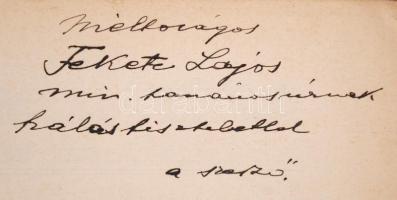 Méltoságos
Fekete Lajos
min. tanácsosúrnak
hálás tisztelettel
a szerző.